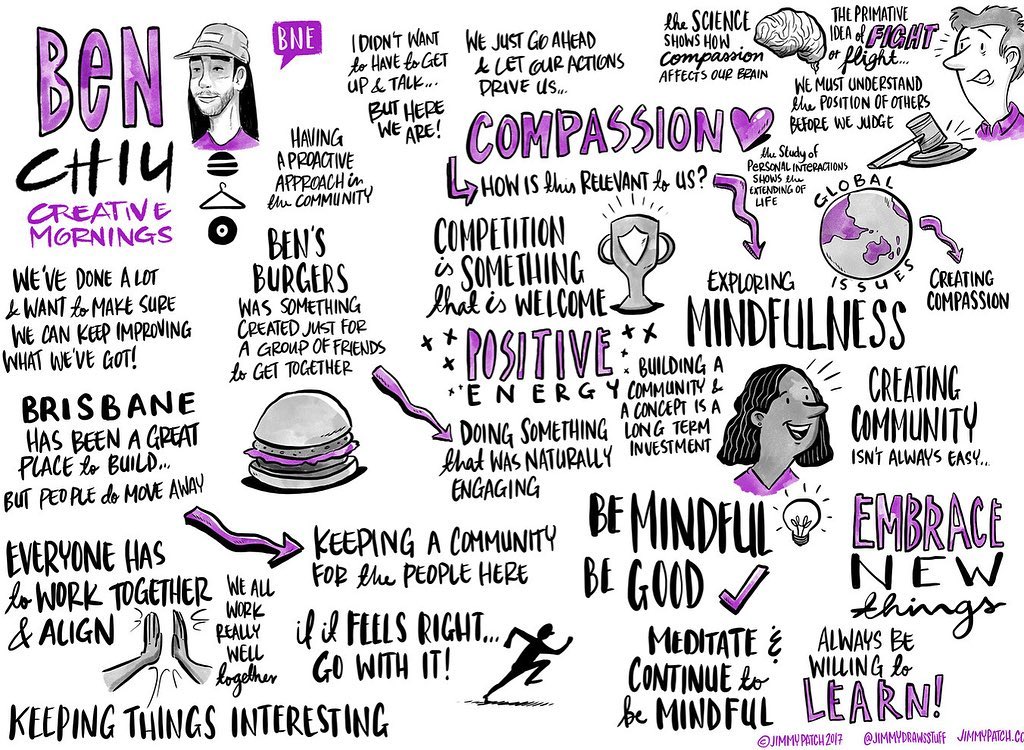 BEN
CHIU
CREATIVE
MORNINGS
BNE
I DIDN'T WANT
to HAVE to GET
UP & TALK...
BUT HERE
WE ARE!
HAVING
A PROACTIVE
APPROACH in
the COMMUNITY
WE'VE DONE A LOT
& WANT to MAKE SURE
WE CAN KEEP IMPROVING
WHAT WE'VE GOT!
BEN'S
BURGERS
WAS SOMETHING
CREATED JUST FOR
A GROUP OF FRIENDS
to GET TOGETHER
BRISBANE
HAS BEEN A GREAT
PLACE to BUILD...
BUT PEOPLE do MOVE AWAY
KEEPING A COMMUNITY
FOR the PEOPLE HERE
EVERYONE HAS
to WORK TOGETHER
& ALIGN
WE ALL
WORK
REALLY
WELL
together
if it FEELS RIGHT...
GO WITH IT!
KEEPING THINGS INTERESTING
WE JUST GO AHEAD
& LET OUR ACTIONS
DRIVE US...
COMPASSION
HOW IS this RELEVANT to US?
COMPETITION
is SOMETHING
that is WELCOME
POSITIVE
ENERGY
DOING SOMETHING
that WAS NATURALLY
ENGAGING
the SCIENCE
SHOWS HOW
compassion
AFFECTS OUR BRAIN
THE PRIMATIVE
IDEA of FIGHT
or flight...
WE MUST UNDERSTAND
the POSITION OF OTHERS
BEFORE WE JUDGE
the STUDY of
PERSONAL INTERACTIONS
SHOWS the
EXTENDING OF
LIFE
GLOBAL
ISSUES
CREATING
COMPASSION
EXPLORING
MINDFULNESS
BUILDING A
COMMUNITY &
A CONCEPT IS A
LONG TERM
INVESTMENT
CREATING
COMMUNITY
ISN'T ALWAYS EASY...
BE MINDFUL
BE GOOD
EMBRACE
NEW
things
MEDITATE &
CONTINUE to
be MINDFUL
ALWAYS BE
WILLING to
LEARN!
©JIMMYPATCH 2017 @JIMMYDRAWSSTUFF JIMMYPATCH.CO